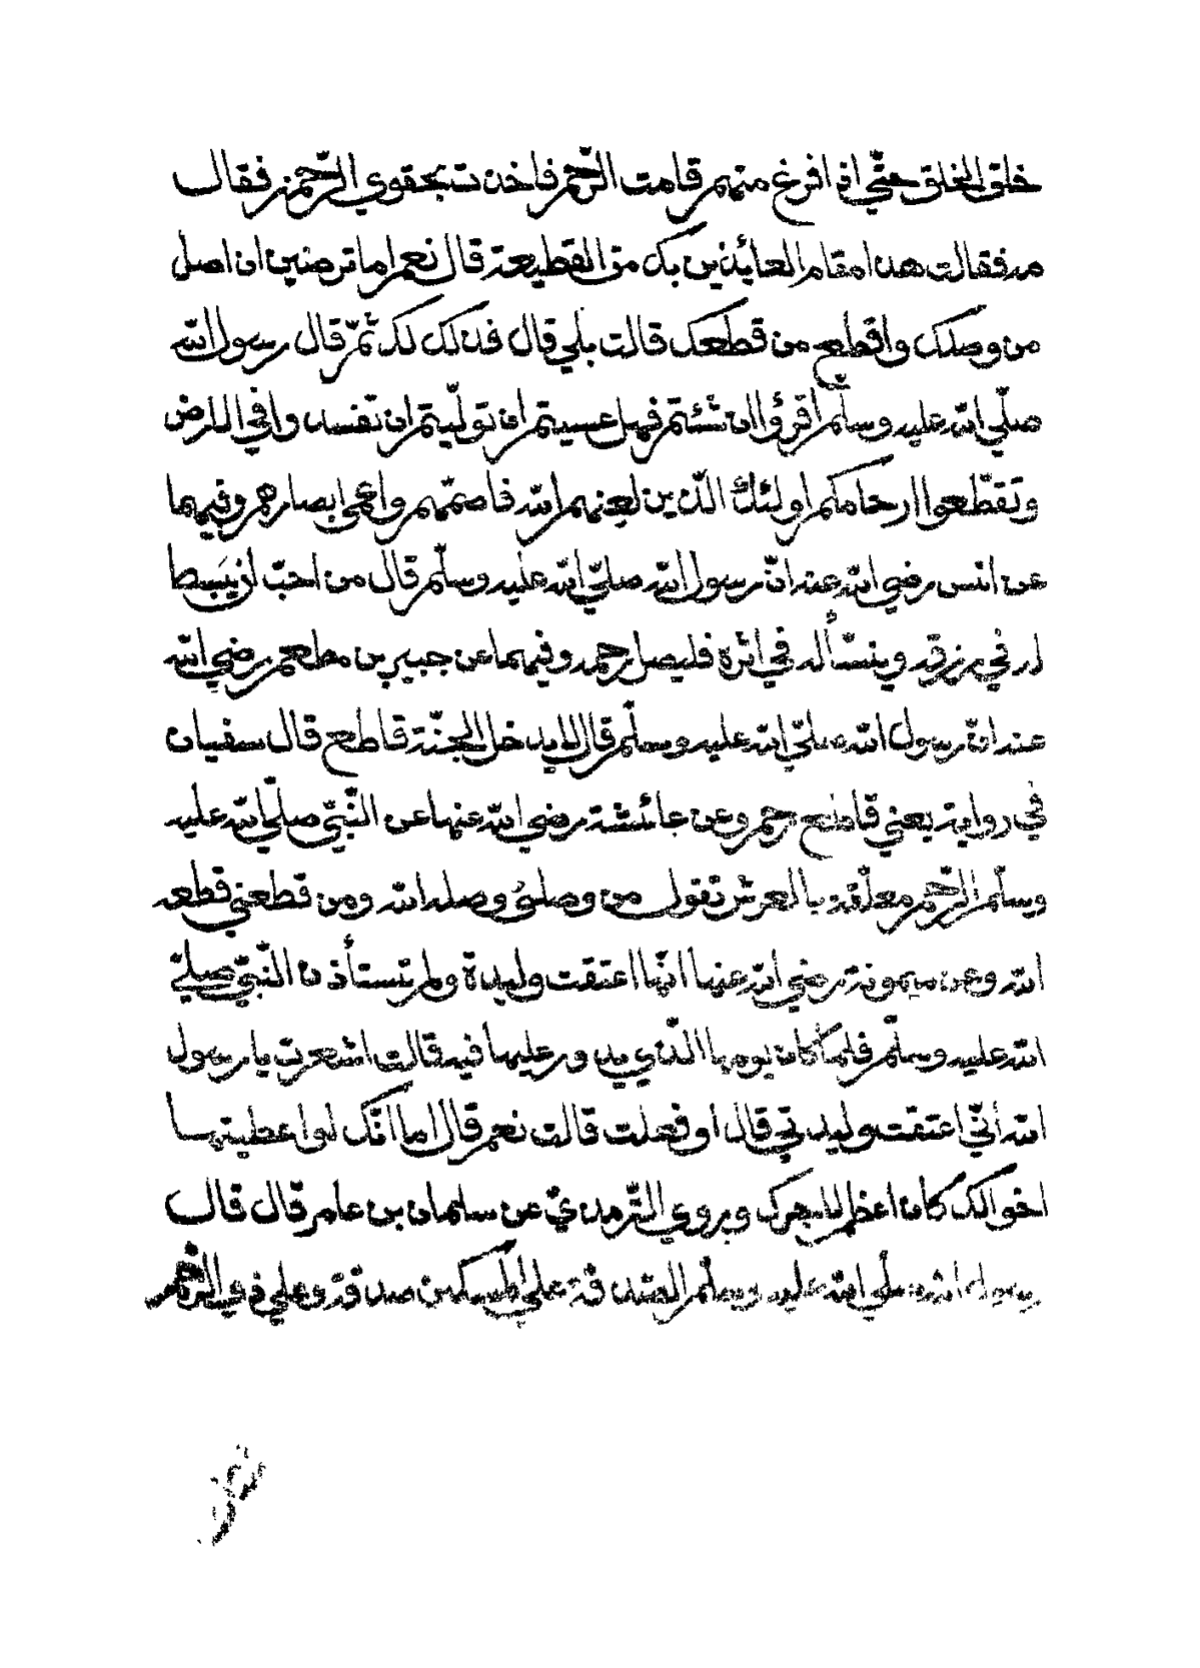 خلق الخلق حتّي اذا فرغ منهم قامت الرّحم فاخذت بحقوي الرّحمن فقال
مه فقالت هذا مقام العائذين بك من القطيعة قال نعم اما ترضين ان اصل
من وصلك واقطع من قطعك قالت بلي قال فذلك لك ثمّ قال رسول الله
صلّي الله عليه وسلّم اقرؤا ان شئتم فهل عسيتم ان تولّيتم ان تفسدوا في الارض
وتقطّعوا ارحامكم اولئك الّذين لعنهم الله فاصمّهم واعمي ابصارهم وفيهما
عن انس رضي الله عنه انّ رسول الله صلّي الله عليه وسلّم قال من احبّ ان يبسط
له في رزقه وينسّأ له في اثره فليصل رحمه وفيهما عن جبير بن مطعم رضي الله
عنه انّ رسول الله صلّي الله عليه وسلّم قال لا يدخل الجنّة قاطع قال سفيان
في رواية يعني قاطع رحم وعن عائشة رضي الله عنها عن النّبيّ صلّي الله عليه
وسلّم الرّحم معلّقة بالعرش تقول من وصلني وصله الله ومن قطعني قطعه
الله وعن ميمونة رضي الله عنها انّها اعتقت وليدة ولم تستأذن النّبيّ صلّي
الله عليه وسلّم فلمّا كان يومها الّذي يدور عليها فيه قالت اشعرت يا رسول
الله انّي اعتقت وليدتي قال أوفعلت قالت نعم قال اما انّك لو اعطيتها
اخوالك كان اعظم لاجرك ويروي التّرمذيّ عن سليمان بن عامر قال قال
رسول الله صلّي الله عليه وسلّم الصّدقة علي المسكين صدقة وعلي ذي الرّحم